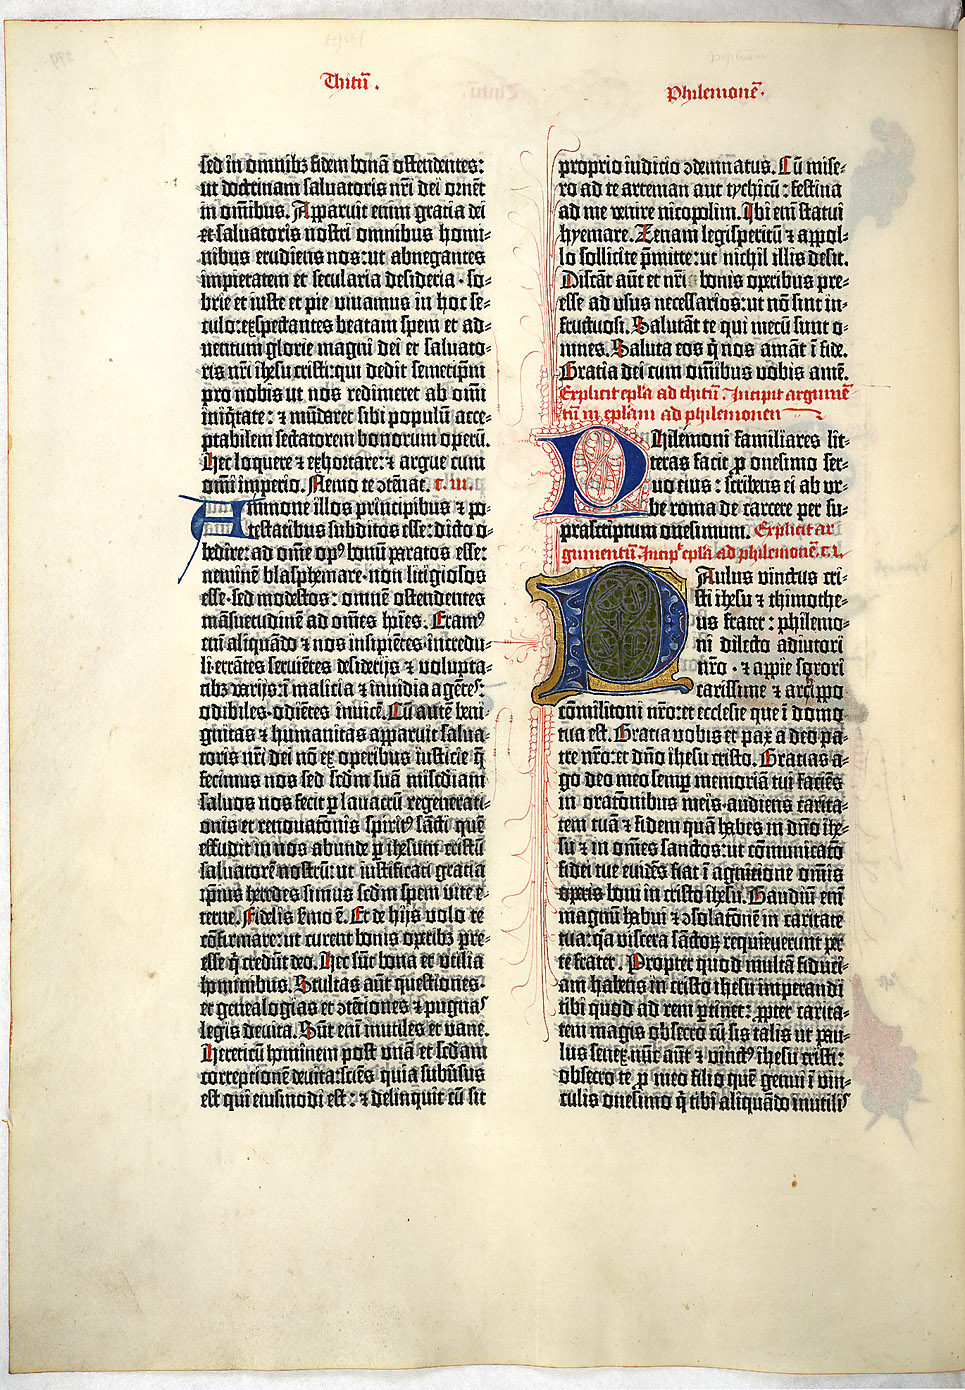 Thitū.
Philemonē.
sed in omnibꝫ fidem bonā ostendentes:
ut doctrinam saluatoris nrī dei ornēt
in om̄ibus. Apparuit enim gratia dei
et saluatoris nostri omnibus homi-
nibus erudiens nos: ut abnegantes
impietatem et secularia desideria · so-
brie et iuste et pie viuamus in hoc se-
culo: exspectantes beatam spem et ad-
uentum glorie magni dei et saluato-
ris nrī ihesu cristi: qui dedit semetip̄m
pro nobis ut nos redimeret ab om̄i
iniq̄tate: ⁊ mūdaret sibi populū acce-
ptabilem sectatorem bonorum operū.
Hec loquere ⁊ exhortare: ⁊ argue cum
om̄i imperio. Nemo te ↄtēnat. c. iii.
Ammone illos principibus ⁊ po-
testatibus subditos esse: dicto o-
bedire: ad om̄e opꝰ bonū paratos esse:
neminē blasphemare · non litigiosos
esse · sed modestos: omnē ostendentes
māsuetudinē ad om̄es hoīes. Eramꝰ
em̄ aliquādo ⁊ nos insipiētes · incredu-
li · errātes · seruiētes desiderijs ⁊ volupta-
tibꝫ varijs: ī malicia ⁊ inuidia agētes:
odibiles · odiētes inuicē. Cū autē beni-
gnitas ⁊ humanitas apparuit salua-
toris nrī dei nō ex operibus iusticie q̄
fecimus nos sed scd̄m suā mīscd̄iam
saluos nos fecit ꝑ lauacrū regenerati-
onis et renouatōnis spiritꝰ sācti quē
effudit in nos abunde ꝑ ihesum cristū
saluatorē nostrū: ut iustificati gratia
ip̄ius heredes simus scd̄m spem vite e-
terne. Fidelis s̄mo ē. Et de hijs volo te
cōfirmare: ut curent bonis oꝑibꝫ pre-
esse q̄ credūt deo. Hec sūt bona et utilia
hominibus. Stultas aūt questiones ·
et genealogias et ↄtētiones ⁊ pugnas
legis deuita. Sūt em̄ inutiles et vane.
Hereticū hominem post unā et scd̄am
correptionē deuita: sciēs quia subūsus
est qui eiusmodi est: ⁊ delinquit cū sit
proprio iudicio ↄdemnatus. Cū mise-
ro ad te arteman aut tychicū: festina
ad me venire nicopolim. Ibi em̄ statui
hyemare. Zenam legisperitū ⁊ appol-
lo sollicite p̄mitte: ut nichil illis desit.
Discāt aūt et nrī bonis operibus pre-
esse ad usus necessarios: ut nō sint in-
fructuosi. Salutāt te qui mecū sunt o-
mnes. Saluta eos q̄ nos amāt ī fide.
Gratia dei cum om̄ibus vobis amē.
Explicit epl̄a ad thitū. Incipit argumē
tū in epl̄am ad philemonen
Philemoni familiares lit-
teras facit ꝑ onesimo ser-
uo eius: scribens ei ab ur-
be roma de carcere per su-
prascriptum onesimum. Explicit ar
gumentū Incip̄t epl̄a ad philemonē c. i.
Paulus vinctus cri-
sti ihesu ⁊ thimothe-
us frater: philemo-
ni dilecto adiutori
nr̄o · ⁊ appie sorori
carissime ⁊ archippo
cōmilitoni nr̄o: et ecclesie que ī domo
tua est. Gratia vobis et pax a deo pa-
tre nr̄o: et dn̄o ihesu cristo. Gratias a-
go deo meo semꝑ memoriā tui faciēs
in oratōnibus meis · audiens carita-
tem tuā ⁊ fidem quā habes in dn̄o ihe-
su ⁊ in om̄es sanctos: ut cōmunicatō
fidei tue euidēs fiat ī agnitione om̄is
operis boni in cristo ihesu. Gaudiū em̄
magnū habui ⁊ ↄsolatōnē in caritate
tua: q̄a viscera sāctoꝝ requieuerunt per
te frater. Propter quod multā fiduci-
am habens in cristo ihesu imperandi
tibi quod ad rem ꝑtinet: ꝓpter carita-
tem magis obsecro cū sis talis ut pau-
lus senex nūc aūt ⁊ vinctꝰ ihesu cristi:
obsecro te ꝑ meo filio quē genui ī vin-
culis onesimo q̄ tibi aliquādo inutilis